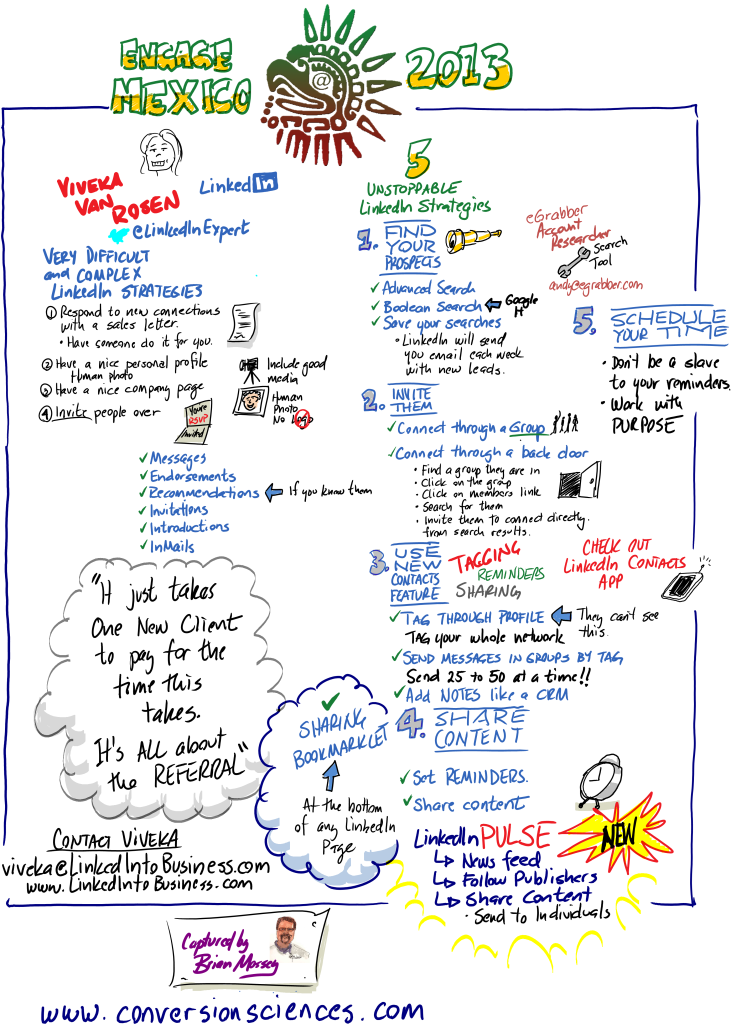 ENGAGE
MEXICO
@
2013
VIVEKA
VAN
ROSEN
Linked in
@LinkedInExpert
VERY DIFFICULT
and COMPLEX
LinkedIn STRATEGIES
① Respond to new connections
with a sales letter.
• Have someone do it for you.
② Have a nice personal profile
Human photo
③ Have a nice company page
④ Invite people over
Include good
media
Human
Photo
No Logo
You're
RSVP
Invited
✓ Messages
✓ Endorsements
✓ Recommendations
If you know them
✓ Invitations
✓ Introductions
✓ InMails
"It just takes
One New Client
to pay for the
time this
takes.
It's ALL about
the REFERRAL"
CONTACT VIVEKA
viveka@LinkedIntoBusiness.com
www.LinkedIntoBusiness.com
5
UNSTOPPABLE
LinkedIn Strategies
1. FIND
YOUR
PROSPECTS
eGrabber
Account
Researcher
Search
Tool
andy@egrabber.com
✓ Advanced Search
✓ Boolean Search
Google
It
✓ Save your searches
• LinkedIn will send
you email each week
with new leads.
2. INVITE
THEM
✓ Connect through a Group
✓ Connect through a back door
• Find a group they are in
• Click on the group
• Click on members link
• Search for them
• Invite them to connect directly.
from search results.
3. USE
NEW
CONTACTS
FEATURE
TAGGING
REMINDERS
SHARING
CHECK OUT
LinkedIn CONTACTS
APP
✓ TAG THROUGH PROFILE
They can't see
this.
TAG your whole network
✓ SEND MESSAGES IN GROUPS BY TAG
Send 25 to 50 at a time!!
✓ Add NOTES like a CRM
4. SHARE
CONTENT
✓ Set REMINDERS.
✓ Share content
✓
SHARING
BOOKMARKLET
At the bottom
of any LinkedIn
Page
LinkedIn PULSE
NEW
↳ News feed
↳ Follow Publishers
↳ Share Content
• Send to Individuals
5. SCHEDULE
YOUR TIME
• Don't be a slave
to your reminders.
• Work with
PURPOSE
Captured by
Brian Massey
www.conversionsciences.com